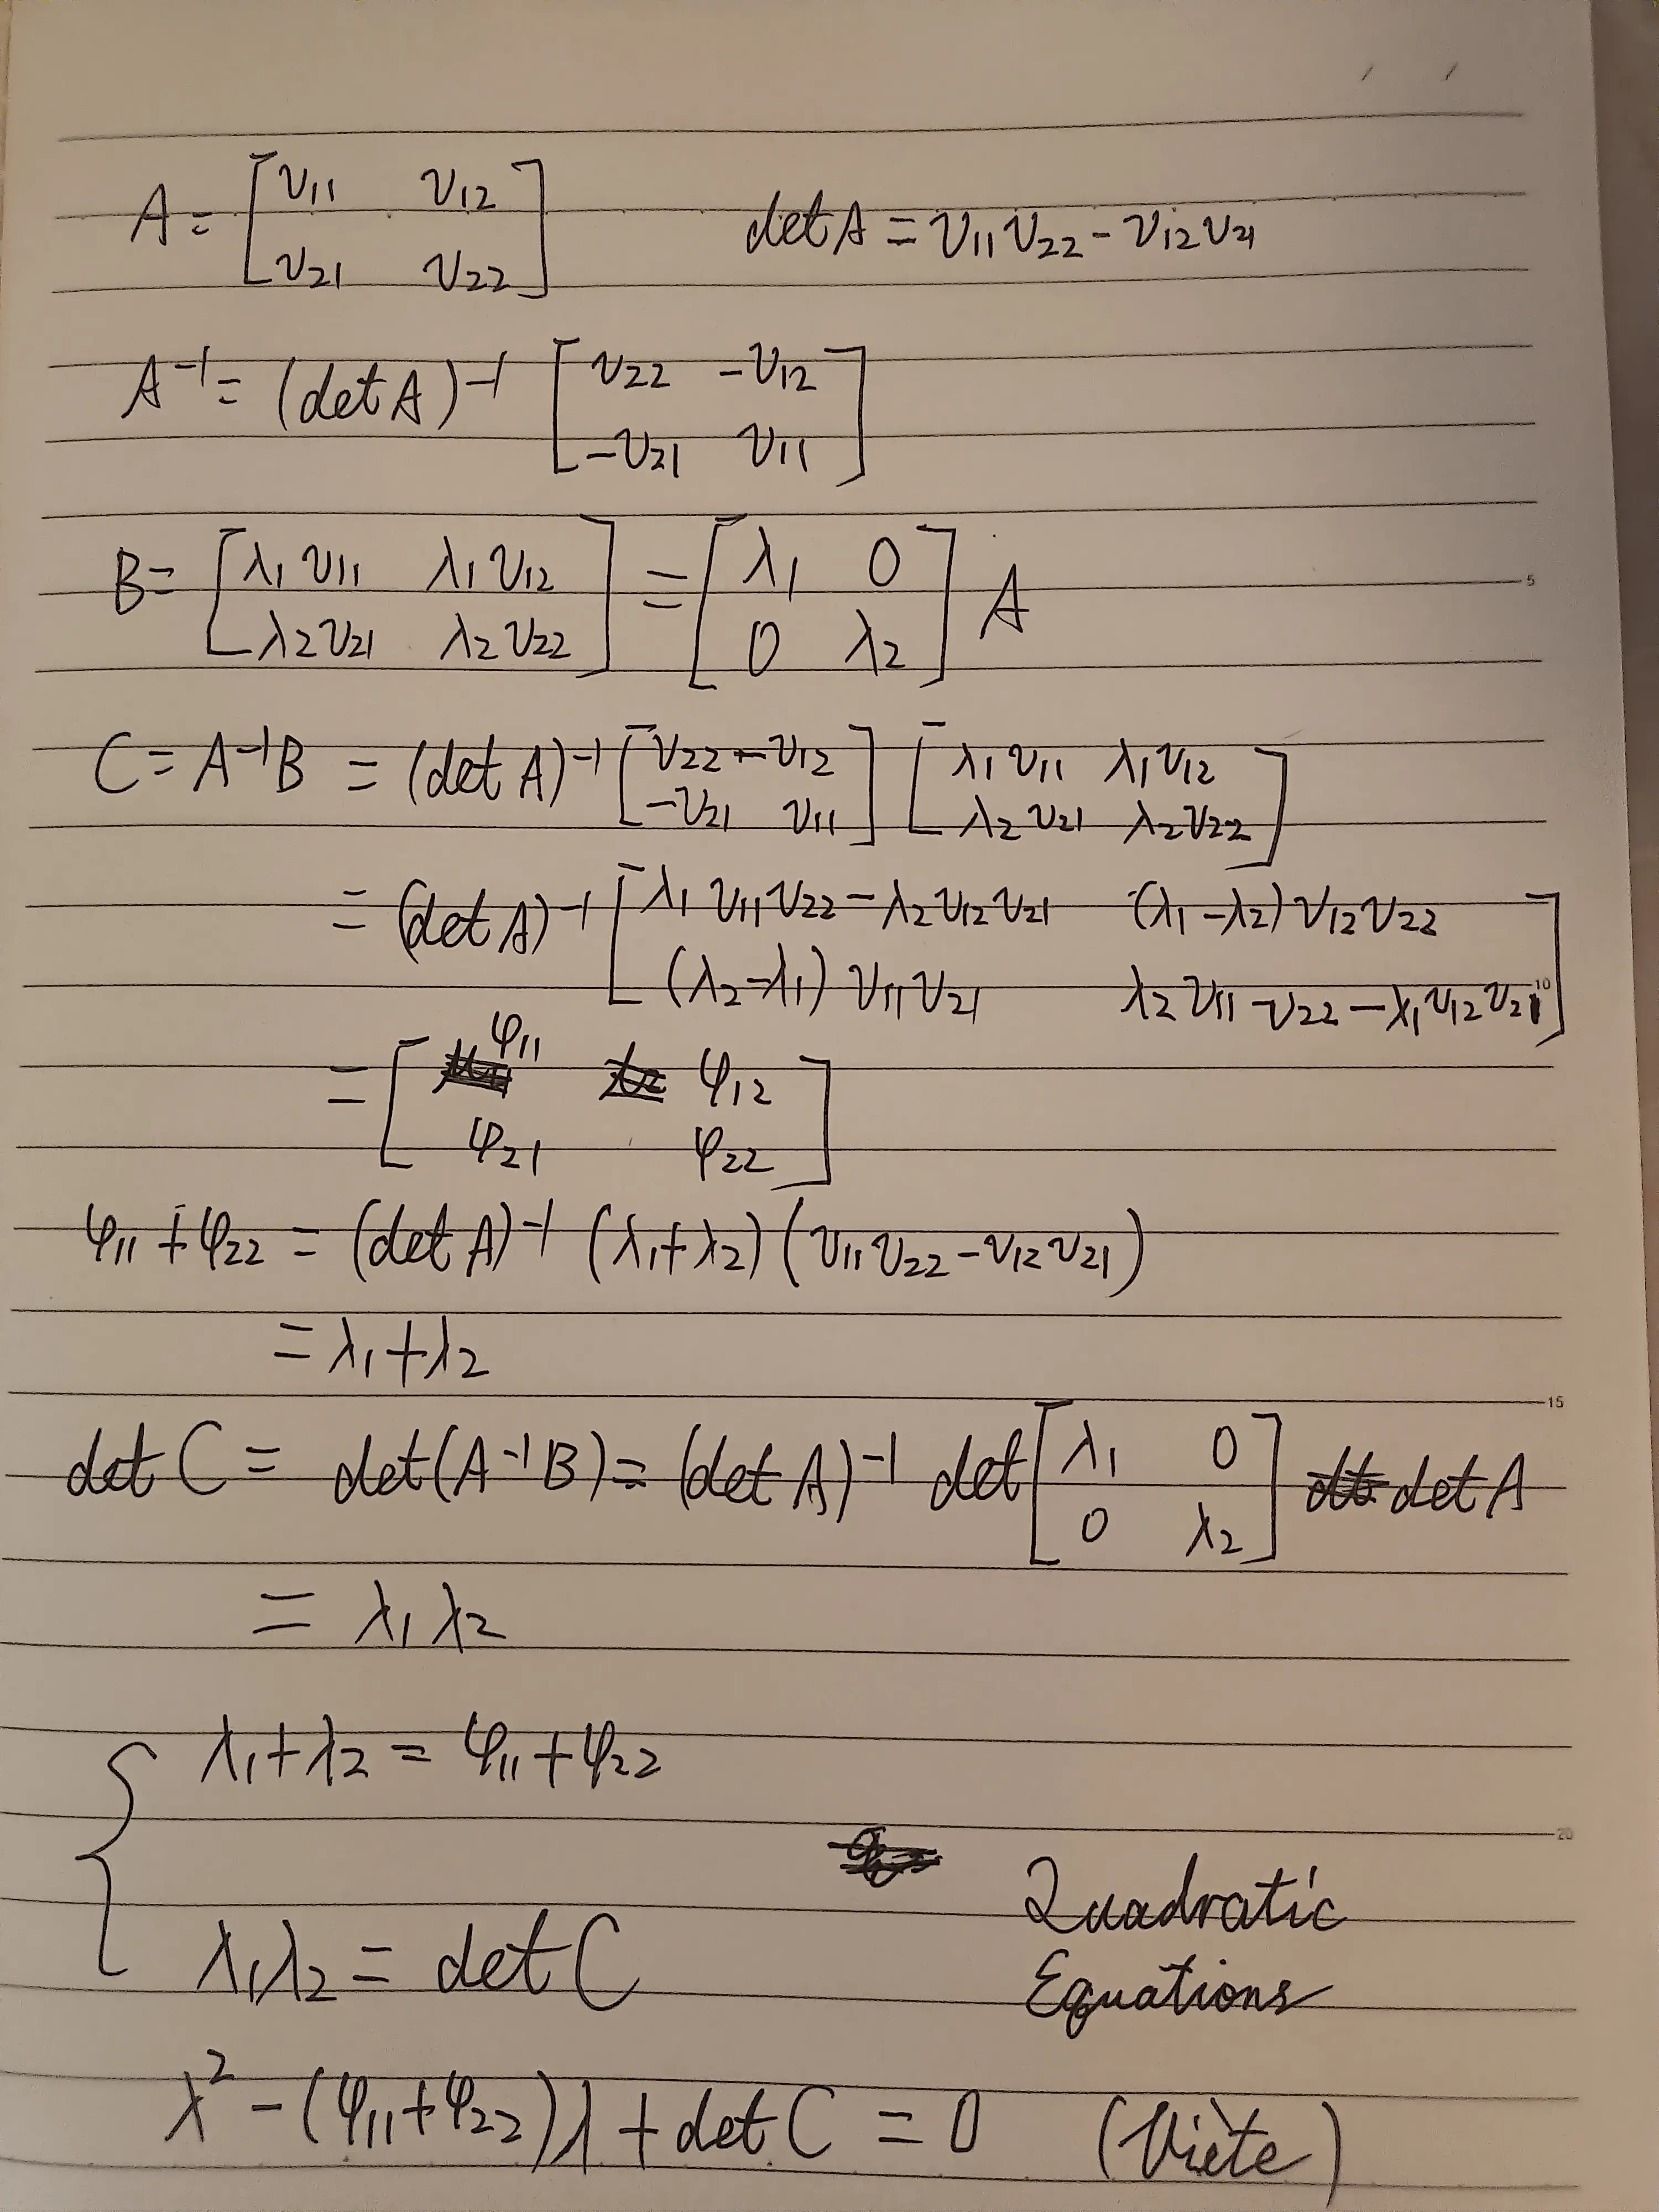 A = [ν₁₁ ν₁₂ ; ν₂₁ ν₂₂]   det A = ν₁₁ν₂₂ - ν₁₂ν₂₁
A⁻¹ = (det A)⁻¹ [ν₂₂ -ν₁₂ ; -ν₂₁ ν₁₁]
B = [λ₁ν₁₁ λ₁ν₁₂ ; λ₂ν₂₁ λ₂ν₂₂] = [λ₁ 0 ; 0 λ₂] A
5
C = A⁻¹B = (det A)⁻¹ [ν₂₂ -ν₁₂ ; -ν₂₁ ν₁₁] [λ₁ν₁₁ λ₁ν₁₂ ; λ₂ν₂₁ λ₂ν₂₂]
= (det A)⁻¹ [λ₁ν₁₁ν₂₂ - λ₂ν₁₂ν₂₁ (λ₁-λ₂)ν₁₂ν₂₂ ; (λ₂-λ₁)ν₁₁ν₂₁ λ₂ν₁₁ν₂₂ - λ₁ν₁₂ν₂₁]
10
= [φ₁₁ φ₁₂ ; φ₂₁ φ₂₂]
φ₁₁ + φ₂₂ = (det A)⁻¹ (λ₁+λ₂) (ν₁₁ν₂₂ - ν₁₂ν₂₁)
= λ₁+λ₂
15
det C = det(A⁻¹B) = (det A)⁻¹ det [λ₁ 0 ; 0 λ₂] det A
= λ₁λ₂
λ₁+λ₂ = φ₁₁+φ₂₂
20
λ₁λ₂ = det C
Quadratic
Equations
λ² - (φ₁₁+φ₂₂)λ + det C = 0   (Viète)